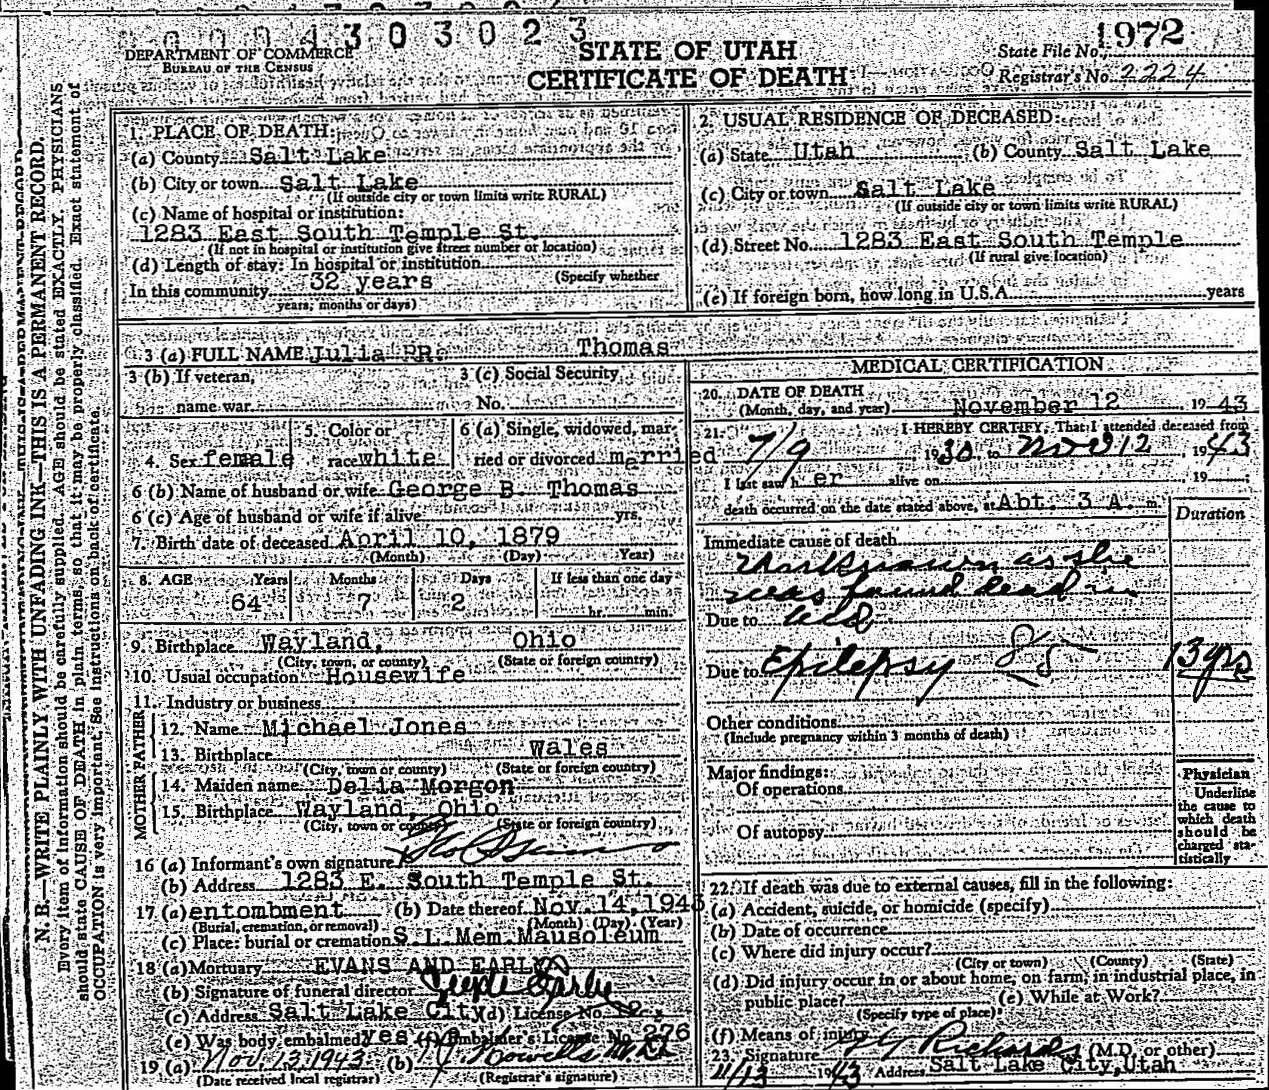 0004303023
DEPARTMENT OF COMMERCE
BUREAU OF THE CENSUS
STATE OF UTAH
CERTIFICATE OF DEATH
State File No. 1972
Registrar's No. 2224
N. B.—WRITE PLAINLY, WITH UNFADING INK—THIS IS A PERMANENT RECORD.
Every item of information should be carefully supplied. AGE should be stated EXACTLY. PHYSICIANS
should state CAUSE OF DEATH in plain terms, so that it may be properly classified. Exact statement of
OCCUPATION is very important. See instructions on back of certificate.
1. PLACE OF DEATH:
(a) County Salt Lake
(b) City or town Salt Lake
(If outside city or town limits write RURAL)
(c) Name of hospital or institution:
1283 East South Temple St.
(If not in hospital or institution give street number or location)
(d) Length of stay: In hospital or institution
(Specify whether
In this community 32 years
years, months or days)
2. USUAL RESIDENCE OF DECEASED:
(a) State Utah (b) County Salt Lake
(c) City or town Salt Lake
(If outside city or town limits write RURAL)
(d) Street No. 1283 East South Temple
(If rural give location)
(e) If foreign born, how long in U.S.A. years
3 (a) FULL NAME Julia Thomas
3 (b) If veteran, name war
3 (c) Social Security No.
4. Sex female
5. Color or race white
6 (a) Single, widowed, married or divorced married
6 (b) Name of husband or wife George B. Thomas
6 (c) Age of husband or wife if alive yrs.
7. Birth date of deceased April 10, 1879
(Month) (Day) (Year)
8. AGE Years Months Days If less than one day
64 7 2 hr. min.
9. Birthplace Wayland, Ohio
(City, town, or county) (State or foreign country)
10. Usual occupation Housewife
11. Industry or business
FATHER
12. Name Michael Jones
13. Birthplace Wales
(City, town or county) (State or foreign country)
MOTHER
14. Maiden name Delia Morgon
15. Birthplace Wayland, Ohio
(City, town or county) (State or foreign country)
16 (a) Informant's own signature
(b) Address 1283 E. South Temple St.
17 (a) entombment (b) Date thereof Nov. 14, 1943
(Burial, cremation, or removal) (Month) (Day) (Year)
(c) Place: burial or cremation S.L. Mem. Mausoleum
18 (a) Mortuary EVANS AND EARLY
(b) Signature of funeral director
(c) Address Salt Lake City (d) License No.
(e) Was body embalmed? yes (f) Embalmer's License No. 276
19 (a) Nov. 13, 1943 (b)
(Date received local registrar) (Registrar's signature)
MEDICAL CERTIFICATION
20. DATE OF DEATH
(Month, day, and year) November 12, 1943
21. I HEREBY CERTIFY, That I attended deceased from
7/9 1930 to Nov 12 1943
I last saw her alive on 19
death occurred on the date stated above, at Abt. 3 A. m.
Duration
Immediate cause of death
Unknown as she
was found dead in
Due to bed
Due to Epilepsy 85 13 yrs
Other conditions
(Include pregnancy within 3 months of death)
Major findings:
Of operations
Of autopsy
Physician
Underline
the cause to
which death
should be
charged sta-
tistically
22. If death was due to external causes, fill in the following:
(a) Accident, suicide, or homicide (specify)
(b) Date of occurrence
(c) Where did injury occur?
(City or town) (County) (State)
(d) Did injury occur in or about home, on farm, in industrial place, in
public place? (e) While at Work?
(Specify type of place)
(f) Means of injury
23. Signature Richards (M.D. or other)
11/13 1943 Address Salt Lake City, Utah